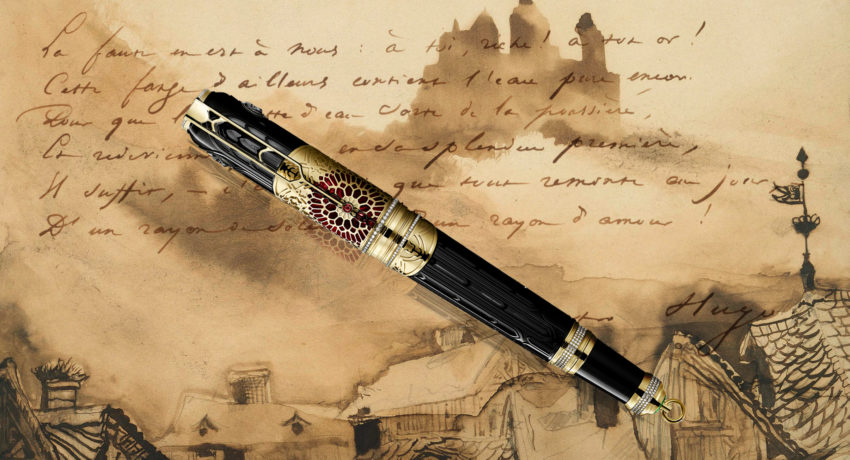 La faute en est à nous : à toi, riche ! à ton or !
Cette fange d'ailleurs contient l'eau pure encor.
Pour que la goutte d'eau sorte de la poussière,
Et redevienne en sa splendeur première,
Il suffit, c' que tout remonte au jour,
D'un rayon de soleil un rayon d'amour !
Hugo